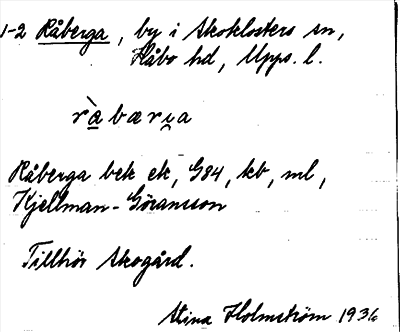 1-2 Råberga, by i Skoklosters sn,
Håbo hd, Upps. l.
rà̱bærɣa
Råberga bek ek, G84, kb, ml,
Kjellman-Göransson
Tillhör Skogård.
Stina Holmström 1936